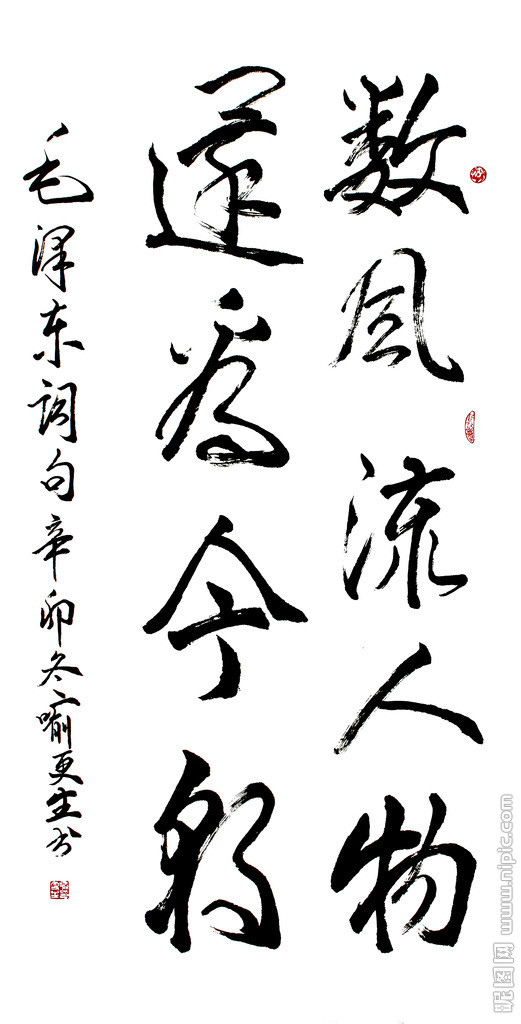 数风流人物
還看今朝
毛泽东词句辛卯冬喻更生书
昵图网 www.nipic.com